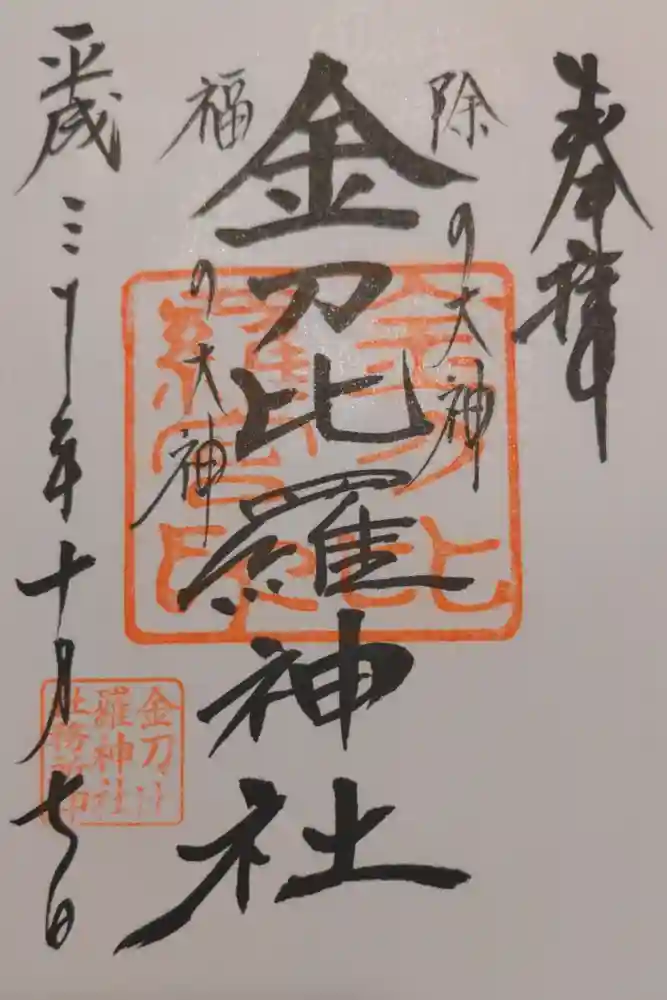 奉拝
除の大神
金刀比羅神社
福の大神
平成三十年十月七日
金刀比
羅宮印
金刀比
羅神社
社務所印